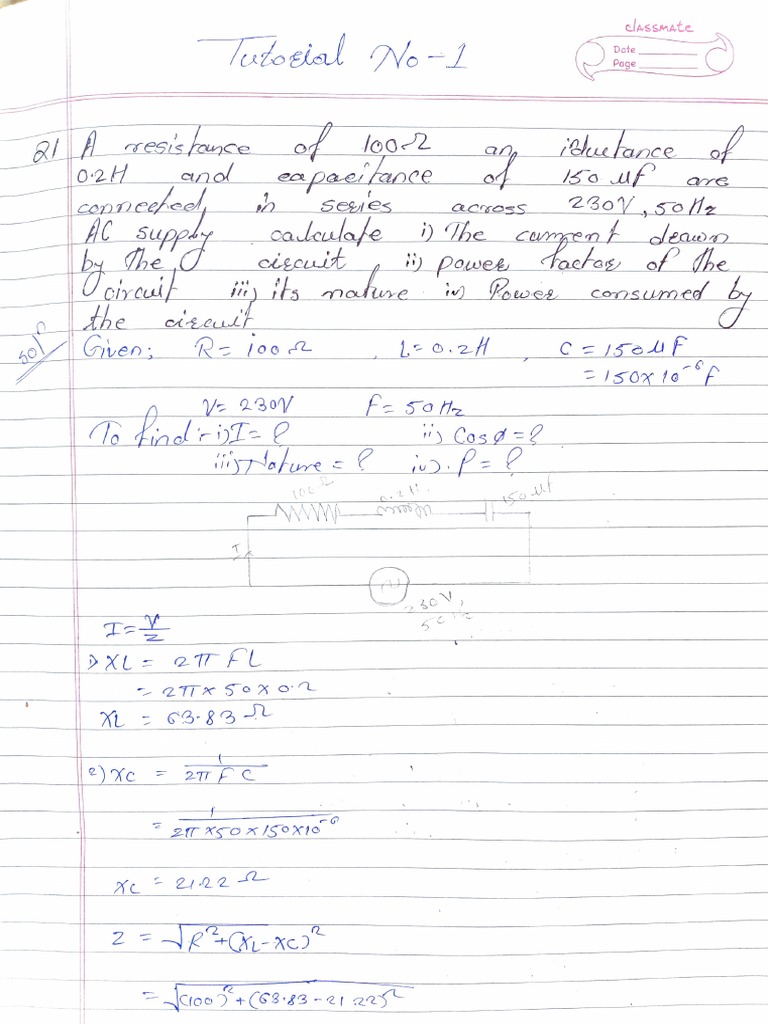 classmate
Date
Page
Tutorial No-1
Q1 A resistance of 100Ω an inductance of
0.2H and capacitance of 150 μf are
connected in series across 230V, 50Hz
AC supply calculate i) The current drawn
by the circuit ii) power factor of the
circuit iii) its nature iv) Power consumed by
the circuit
Given; R = 100Ω , L = 0.2H , C = 150μF
= 150×10⁻⁶F
V = 230V F = 50Hz
To find :- i) I = ? ii) Cosφ = ?
iii) Nature = ? iv). P = ?
100Ω 0.2H. 150μf
I
230V,
50Hz
I = V/Z
1) XL = 2π FL
= 2π × 50 × 0.2
XL = 63.83 Ω
2) XC = 1/2π F C
= 1/2π×50×150×10⁻⁶
XC = 21.22 Ω
Z = √R²+(XL-XC)²
= √(100)²+(63.83-21.22)²